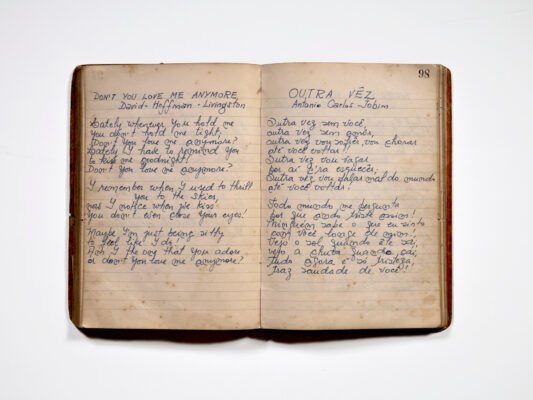 DON'T YOU LOVE ME ANYMORE
David - Hoffman - Livingston
Lately whenever you hold me
you don't hold me tight,
Don't you love me anymore?
Lately I have to remind you
to kiss me goodnight!
Don't you love me anymore?
I remember when I used to thrill
you to the skies,
now I notice when we kiss
you don't even close your eyes!
Maybe I'm just being silly
to feel like I do!
Am I the one that you adore
or don't you love me anymore?
98
OUTRA VÊZ
Antonio Carlos Jobim
Outra vez sem você,
outra vez sem amor,
outra vez vou sofrer vou chorar
até você voltar!
Outra vez vou vagar
por aí p'ra esquecer,
Outra vez vou falar mal do mundo
até você voltar!
Todo mundo me pergunta
por que ando triste assim!
Ninguém sabe o que eu sinto
com você longe de mim!
Vejo o sol quando êle sai,
vejo a chuva quando cai,
tudo agora é só tristeza,
traz saudade de você!